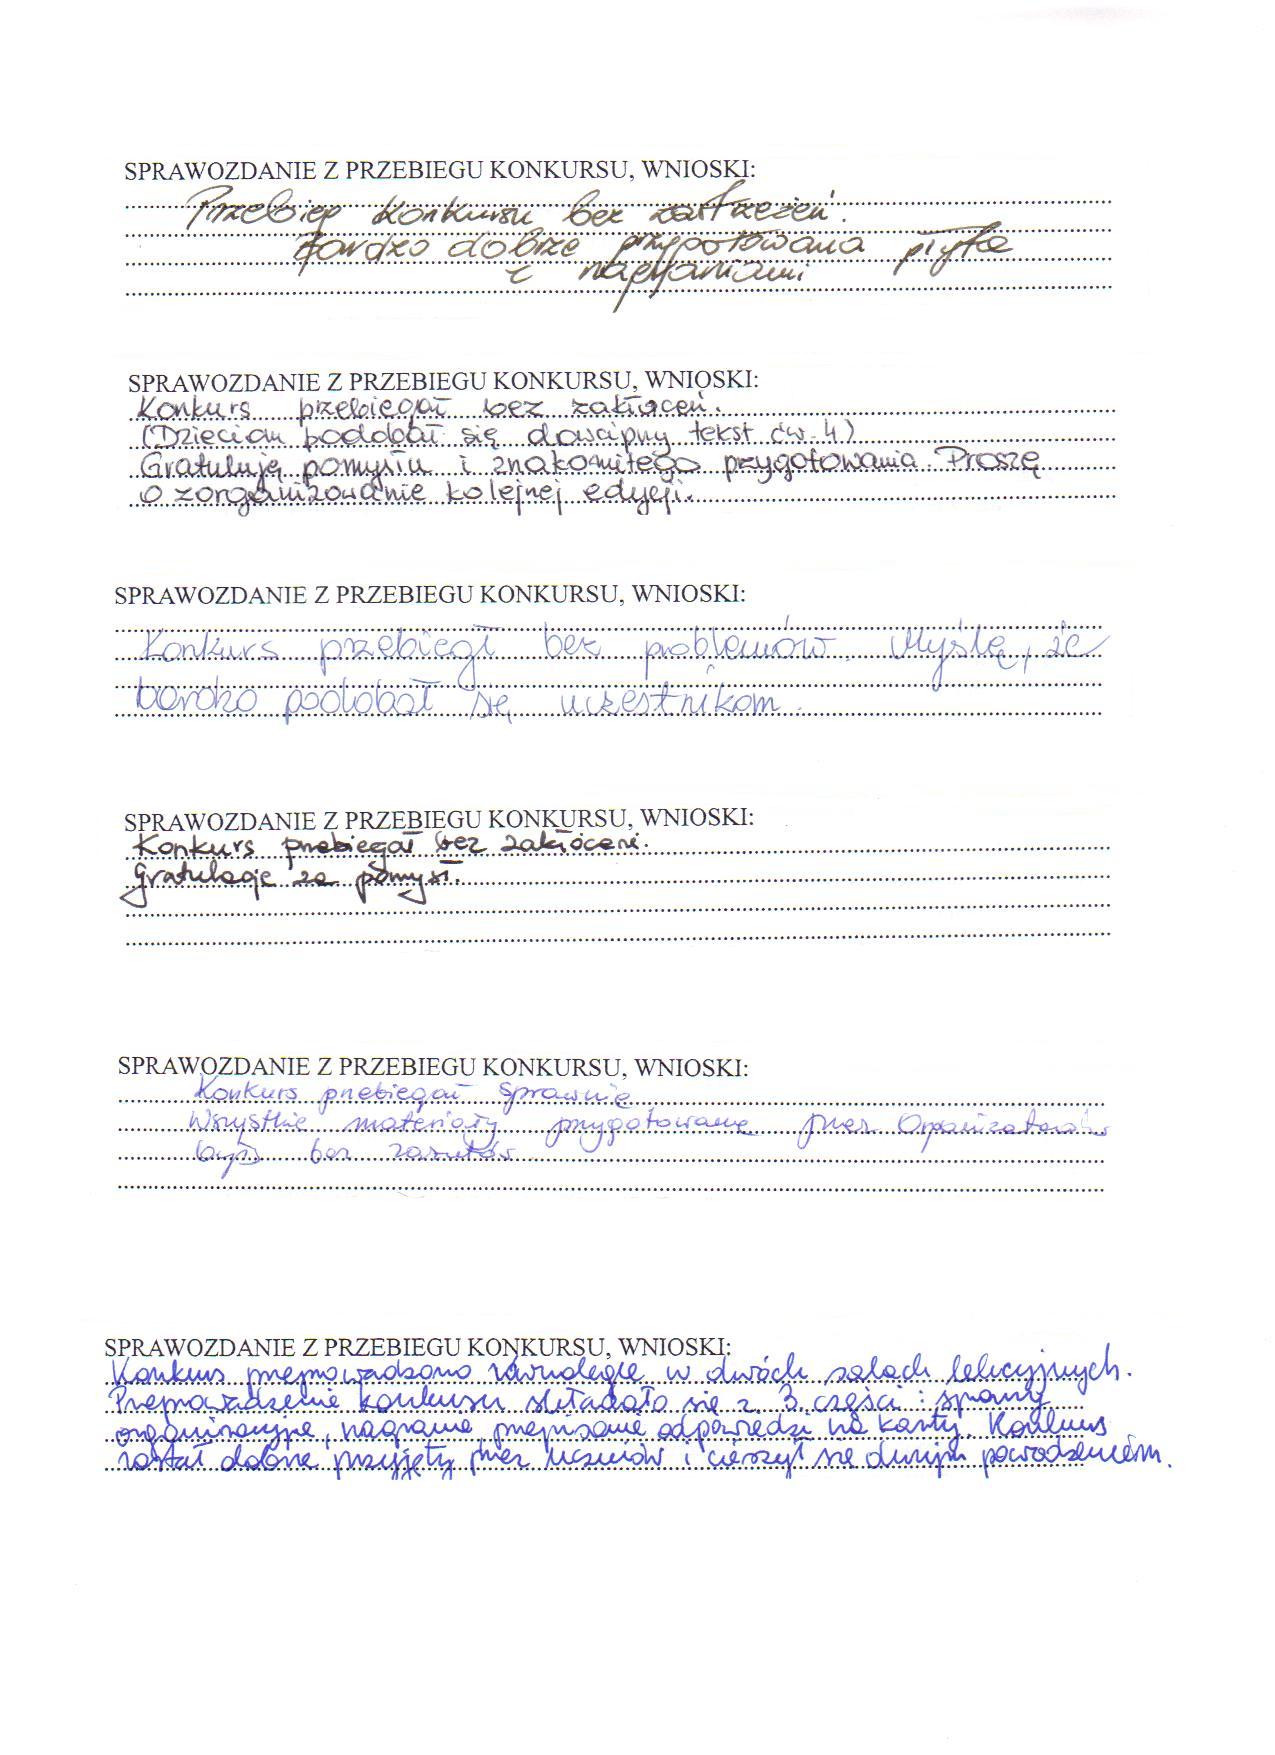 SPRAWOZDANIE Z PRZEBIEGU KONKURSU, WNIOSKI:
Przebieg konkursu bez zastrzeżeń.
Bardzo dobrze przygotowana płyta
z nagraniami
SPRAWOZDANIE Z PRZEBIEGU KONKURSU, WNIOSKI:
Konkurs przebiegał bez zakłóceń.
(Dzieciom podobał się dowcipny tekst ćw. 4)
Gratuluję pomysłu i znakomitego przygotowania. Proszę
o zorganizowanie kolejnej edycji.
SPRAWOZDANIE Z PRZEBIEGU KONKURSU, WNIOSKI:
Konkurs przebiegł bez problemów. Myślę, że
bardzo podobał się uczestnikom.
SPRAWOZDANIE Z PRZEBIEGU KONKURSU, WNIOSKI:
Konkurs przebiegał bez zakłóceń.
Gratulacje za pomysł.
SPRAWOZDANIE Z PRZEBIEGU KONKURSU, WNIOSKI:
Konkurs przebiegał sprawnie
Wszystkie materiały przygotowane przez Organizatorów
były bez zarzutów.
SPRAWOZDANIE Z PRZEBIEGU KONKURSU, WNIOSKI:
Konkurs przeprowadzono równolegle w dwóch salach lekcyjnych.
Przeprowadzenie konkursu składało się z 3 części: sprawy
organizacyjne, nagranie, przepisanie odpowiedzi na karty. Konkurs
został dobrze przyjęty przez uczniów i cieszył się dużym powodzeniem.